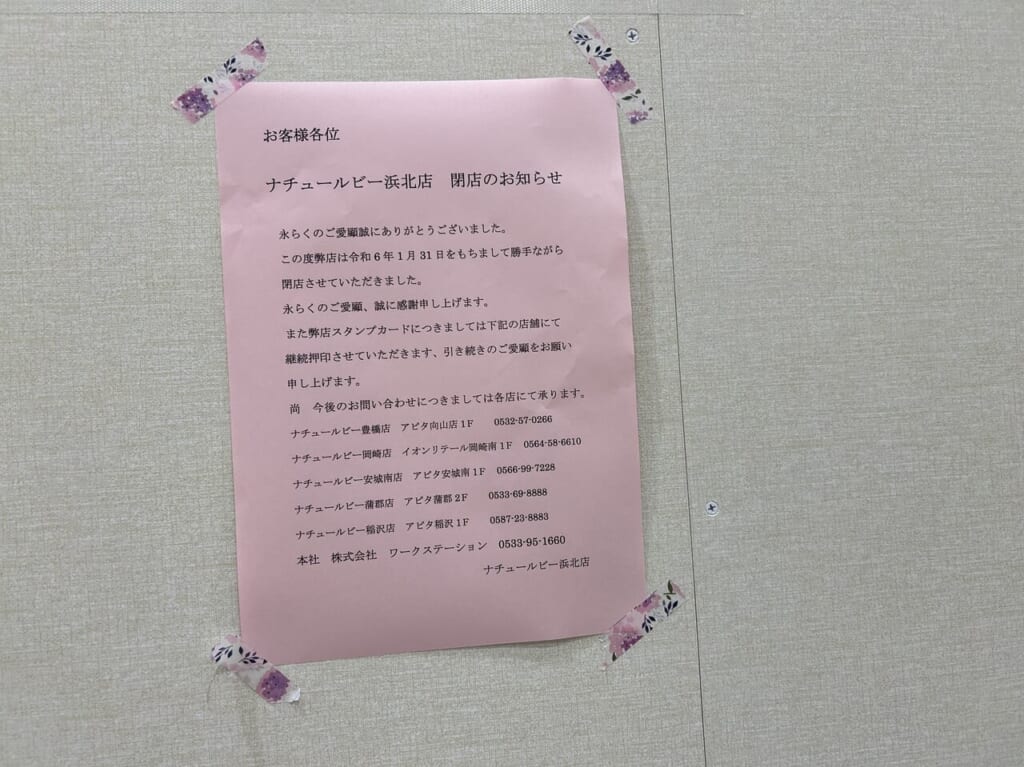 お客様各位
ナチュールビー浜北店　閉店のお知らせ
永らくのご愛顧誠にありがとうございました。
この度弊店は令和6年1月31日をもちまして勝手ながら
閉店させていただきました。
永らくのご愛顧、誠に感謝申し上げます。
また弊店スタンプカードにつきましては下記の店舗にて
継続押印させていただきます、引き続きのご愛顧をお願い
申し上げます。
尚　今後のお問い合わせにつきましては各店にて承ります。
ナチュールビー豊橋店　アピタ向山店1F　0532-57-0266
ナチュールビー岡崎店　イオンリテール岡崎南1F　0564-58-6610
ナチュールビー安城南店　アピタ安城南1F　0566-99-7228
ナチュールビー蒲郡店　アピタ蒲郡2F　0533-69-8888
ナチュールビー稲沢店　アピタ稲沢1F　0587-23-8883
本社　株式会社　ワークステーション　0533-95-1660
ナチュールビー浜北店